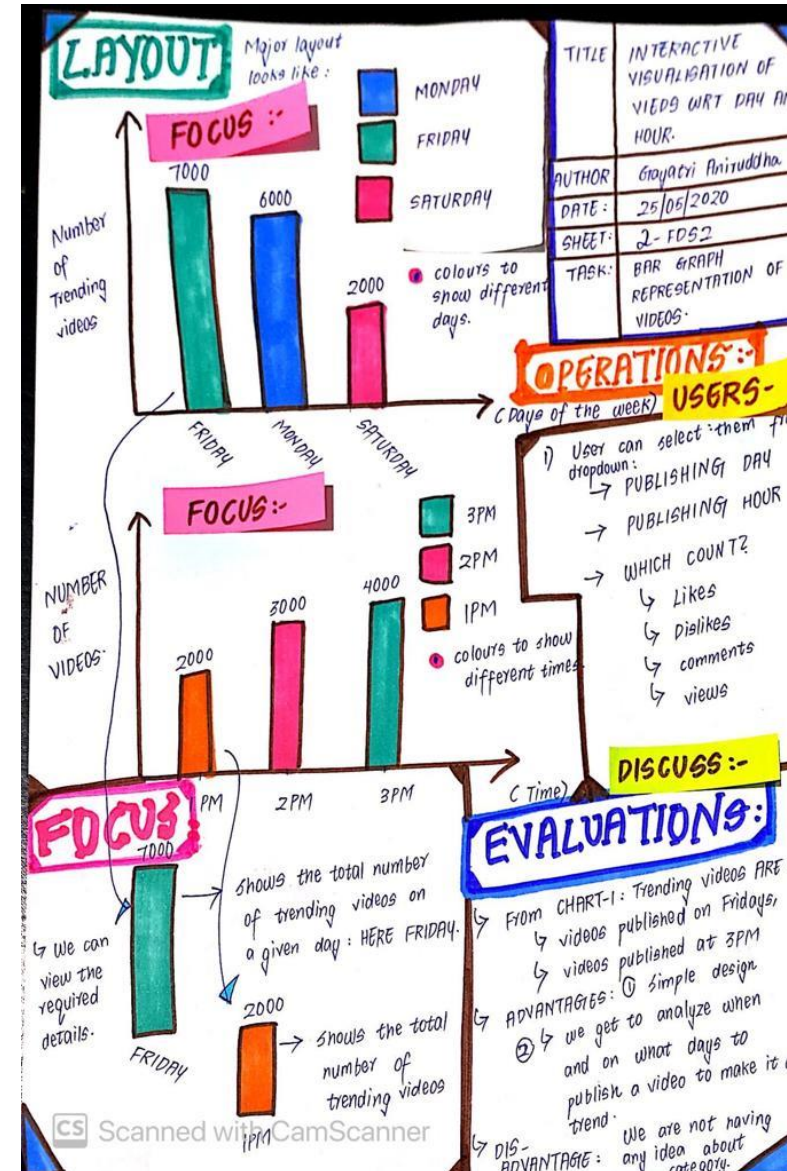 LAYOUT
Major layout
looks like :
MONDAY
FRIDAY
SATURDAY
FOCUS :-
7000
6000
2000
Number
of
Trending
videos
colours to
show different
days.
FRIDAY
MONDAY
SATURDAY
(Days of the week)
TITLE
INTERACTIVE
VISUALISATION OF
VIEDS WRT DAY AN
HOUR.
AUTHOR
Gayatri Aniruddha
DATE :
25/05/2020
SHEET:
2-FDS2
TASK:
BAR GRAPH
REPRESENTATION OF
VIDEOS.
OPERATIONS:-
USERS-
1) User can select them fr
dropdown:
→ PUBLISHING DAY
→ PUBLISHING HOUR
→ WHICH COUNT?
↳ Likes
↳ Dislikes
↳ comments
↳ views
FOCUS:-
3PM
2PM
1PM
colours to show
different times.
NUMBER
OF
VIDEOS.
2000
3000
4000
PM
2PM
3PM
(Time)
FOCUS:
7000
↳ We can
view the
required
details.
FRIDAY
→ shows the total number
of trending videos on
a given day : HERE FRIDAY.
2000
→ shows the total
number of
trending videos
1PM
DISCUSS:-
EVALUATIONS:
↳ From CHART-1: Trending videos ARE
↳ videos published on Fridays,
↳ videos published at 3PM
↳ ADVANTAGES: ① simple design
② ↳ we get to analyze when
and on what days to
publish a video to make it a
trend.
↳ DIS-
ADVANTAGE: We are not having
any idea about
category.
CS Scanned with CamScanner